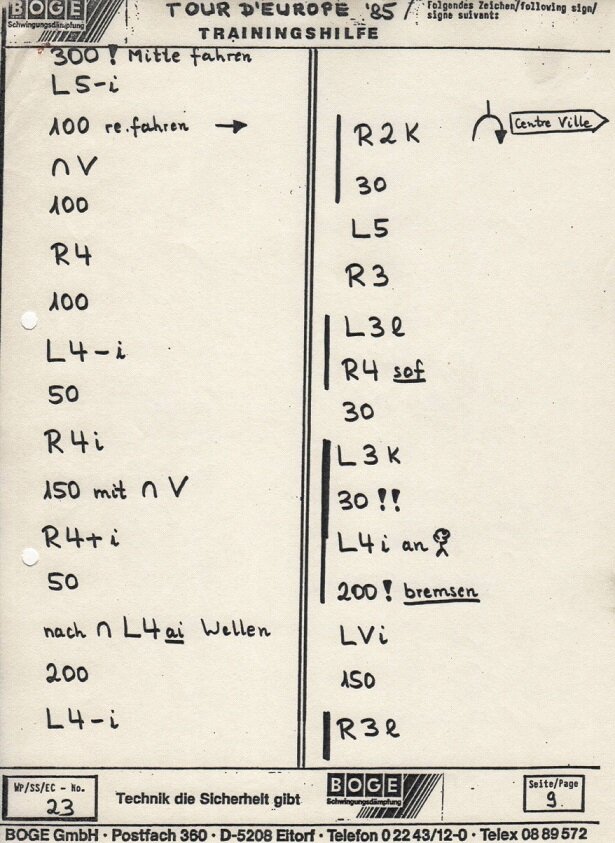 BOGE
Schwingungsdämpfung
TOUR D'EUROPE '85
TRAININGSHILFE
Folgendes Zeichen/following sign/
signe suivants
300! Mitte fahren
L5-i
100 re. fahren →
∩ V
100
R4
100
L4-i
50
R4i
150 mit ∩ V
R4+i
50
nach ∩ L4ai Wellen
200
L4-i
Centre Ville
R2K
30
L5
R3
L3l
R4 sof
30
L3K
30!!
L4i an
200! bremsen
LVi
150
R3l
WP/SS/EC - No.
23
Technik die Sicherheit gibt
BOGE
Schwingungsdämpfung
Seite/Page
9
BOGE GmbH · Postfach 360 · D-5208 Eitorf · Telefon 02243/12-0 · Telex 0889572